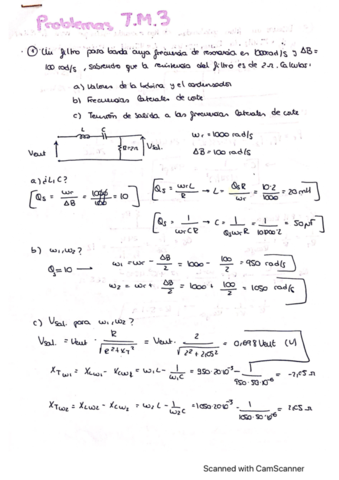 Problemas T.M.3
① Un filtro para banda cuya frecuencia de resonancia en 1000rad/s y ΔB=
100 rad/s, sabiendo que la resistencia del filtro es de 2Ω. Calcular:
a) Valores de la bobina y el condensador
b) Frecuencias laterales de corte
c) Tensión de salida a las frecuencias laterales de corte
L C
Vent R=2Ω Vsal
ωr = 1000 rad/s
ΔB = 100 rad/s
a) ¿L,C?
[Qs = ωr/ΔB = 1000/100 = 10]
[Qs = ωrL/R → L = QsR/ωr = 10·2/1000 = 20 mH]
[Qs = 1/ωrCR → C = 1/QsωrR = 1/10·1000·2 = 50 μF]
b) ω1, ω2?
Qs = 10 → ω1 = ωr − ΔB/2 = 1000 − 100/2 = 950 rad/s
ω2 = ωr + ΔB/2 = 1000 + 100/2 = 1050 rad/s
c) Vsal. para ω1, ω2?
Vsal. = Vent · R/√(R²+XT²) = Vent · 2/√(2²+2,05²) = 0,698 Vent (V)
XTω1 = XLω1 − XCω1 = ω1L − 1/ω1C = 950·20·10⁻³ − 1/950·50·10⁻⁶ = −2,05 Ω
XTω2 = XLω2 − XCω2 = ω2L − 1/ω2C = 1050·20·10⁻³ − 1/1050·50·10⁻⁶ = 1,95 Ω
Scanned with CamScanner